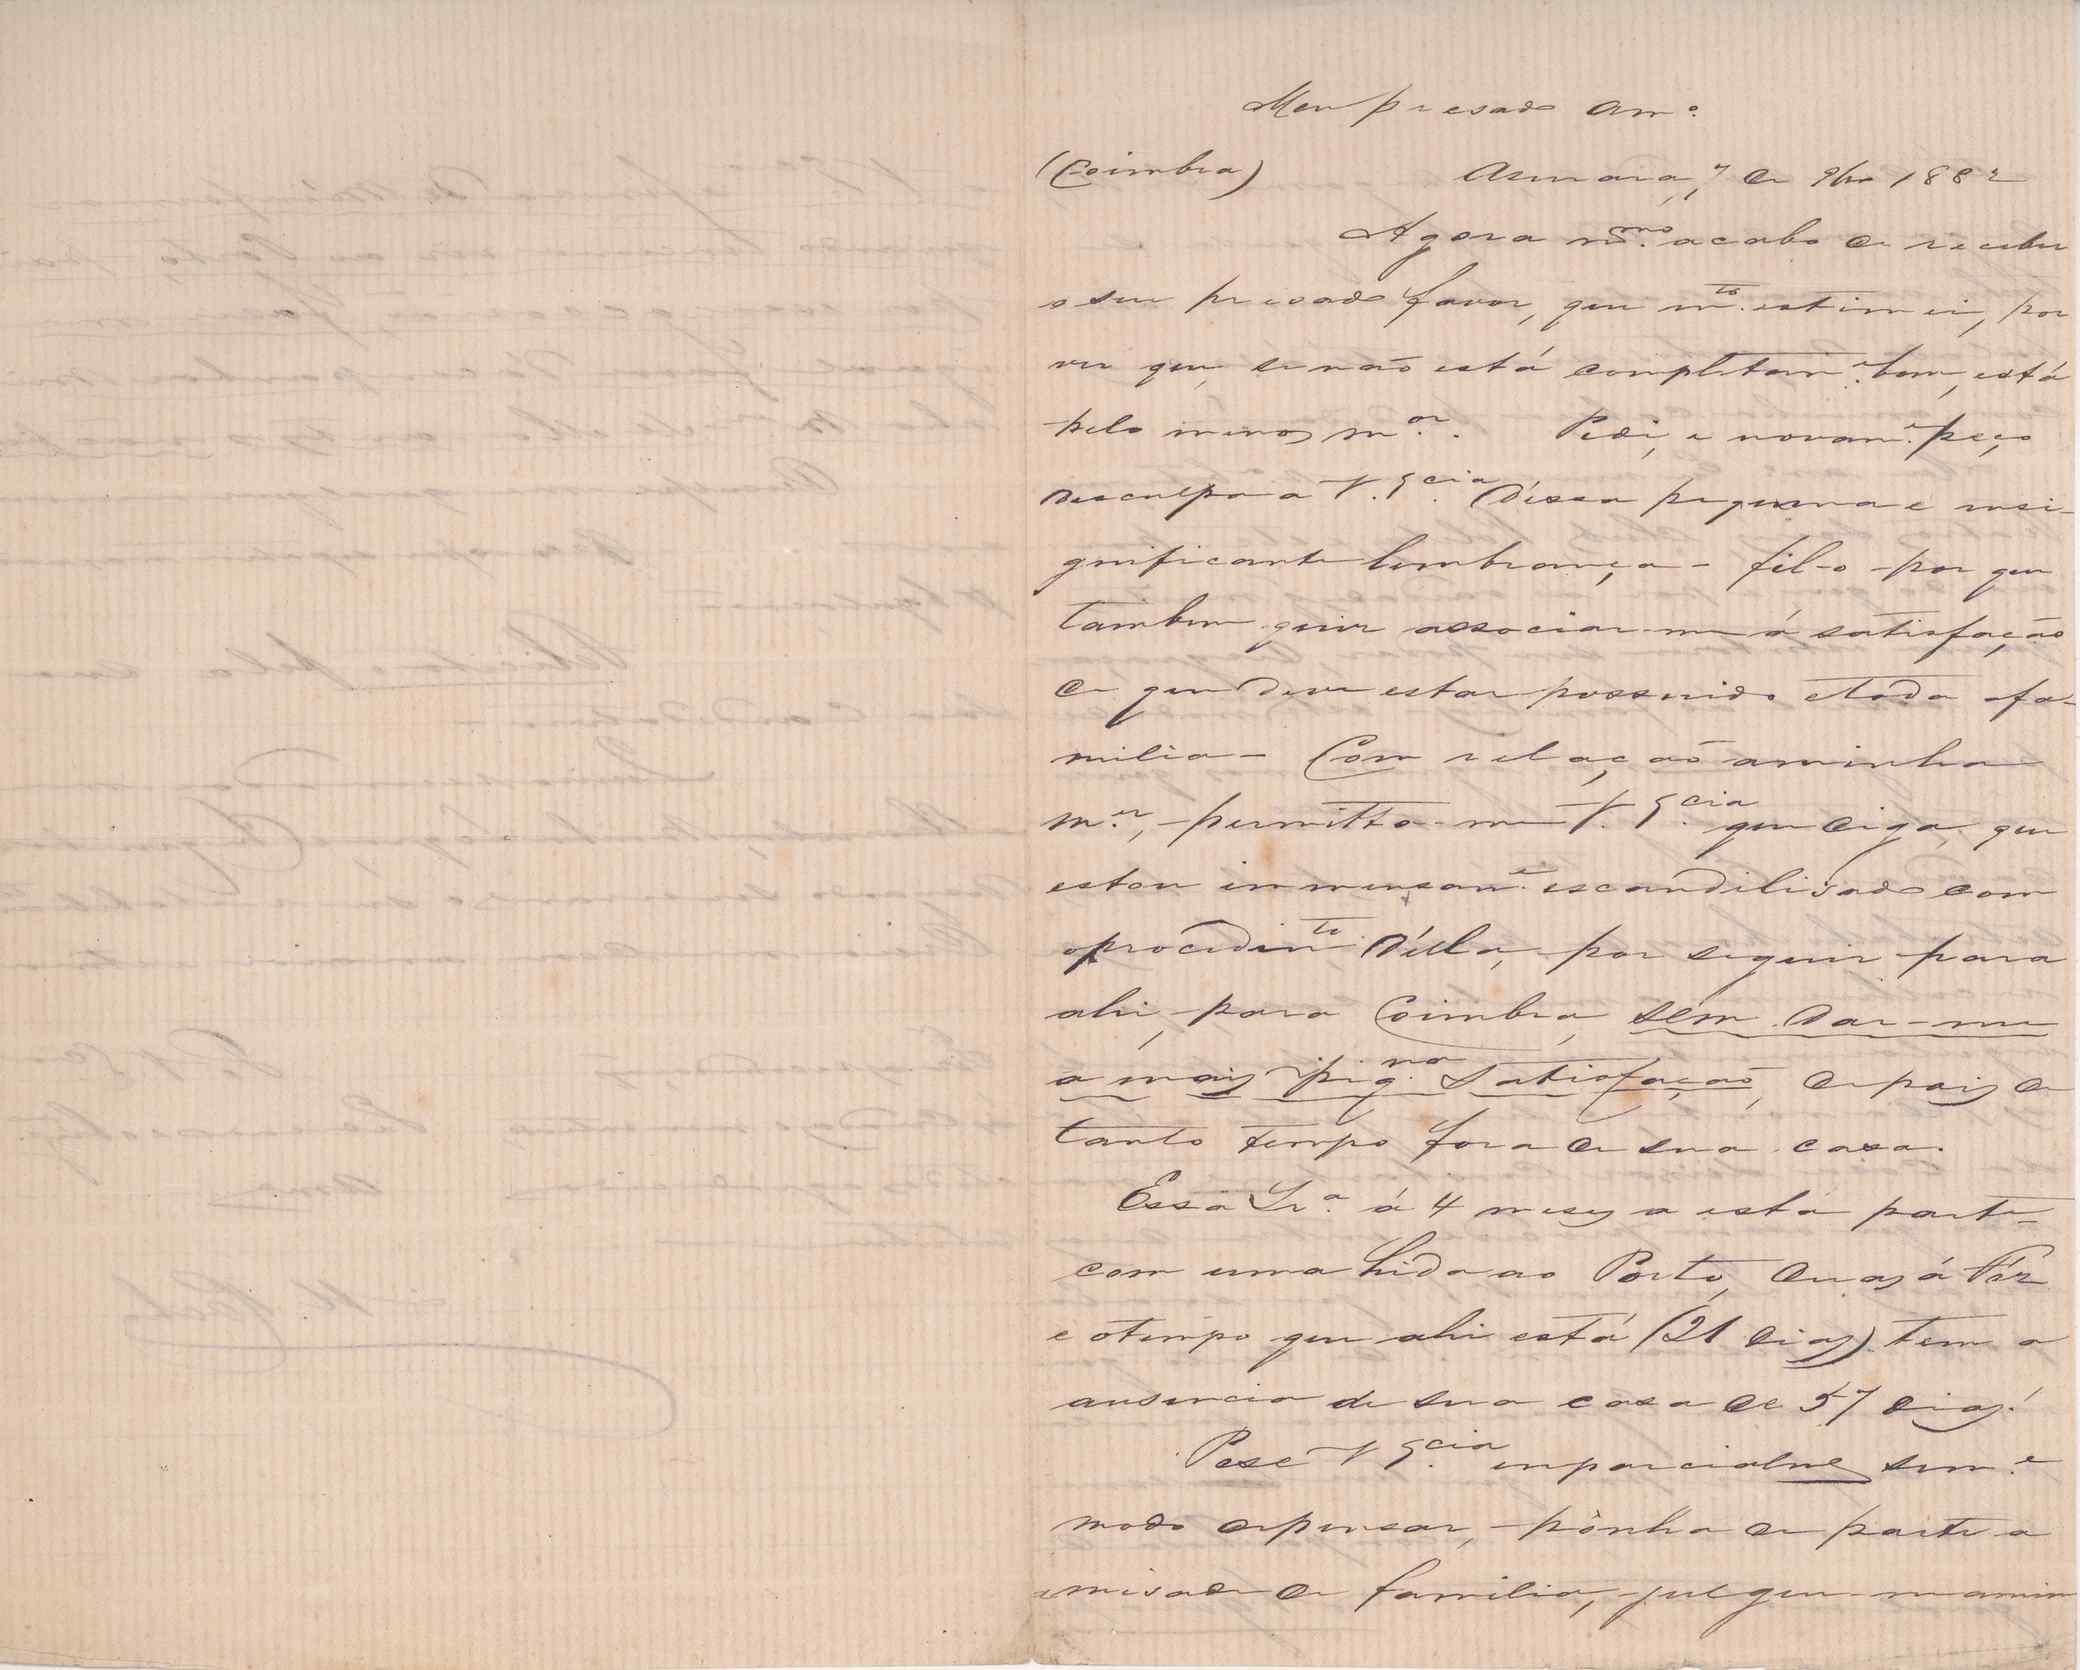 Meu presado Am.º
(Coimbra) 7 de 9bro 1882
Agora m.mo acabo de receber
o seu presado favor, que m.to estimei, por
ver que, se não está completam.e bom, está
pelo menos m.or. Pedi, e novam.e peço
desculpa a V. Ex.cia d'essa pequena e insi-
gnificante lembrança - fil-o por que
tambem quiz associar-me á satisfação
de que deve estar possuido e toda a fa-
milia - Com relação a minha
m.er, permitta-me V. Ex.cia que diga, que
estou immensam.e escandilisado com
o procedim.to d'ella, por seguir para
ahi, para Coimbra, sem dar-me
a mais peq.na satisfação, depois de
tanto tempo fora de sua casa.
Essa Sr.ª á 4 meses a esta parte
com uma hida ao Porto, duas á Foz
e o tempo que ahi está (21 dias) tem a
ausencia de sua casa de 57 dias!
Pese V Ex.cia imparcialme
modo de pensar, pônha de parte a
amisade de familia, julgue-me a mim